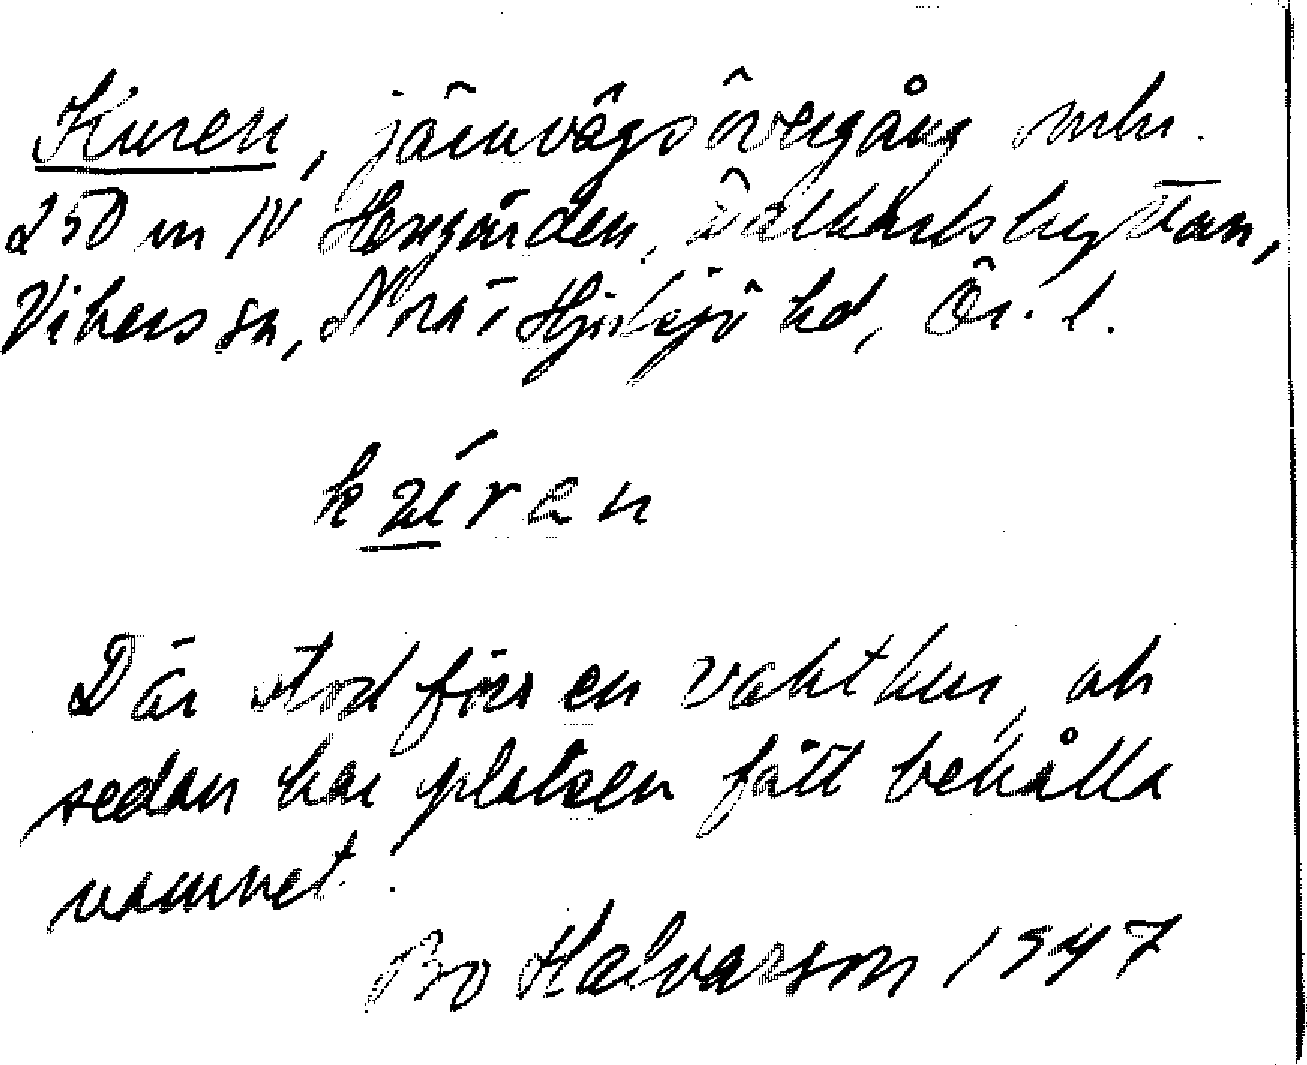 Kuren, järnvägsövergång mm.
250 m N Herrgården, Dalkarlshyttan,
Vikers sn, Nora o Hjulsjö hd, Ör. l.
kʉ́ren
Där stod förr en vaktkur, och
sedan har platsen fått behålla
namnet.
Bo Kalvarson 1947